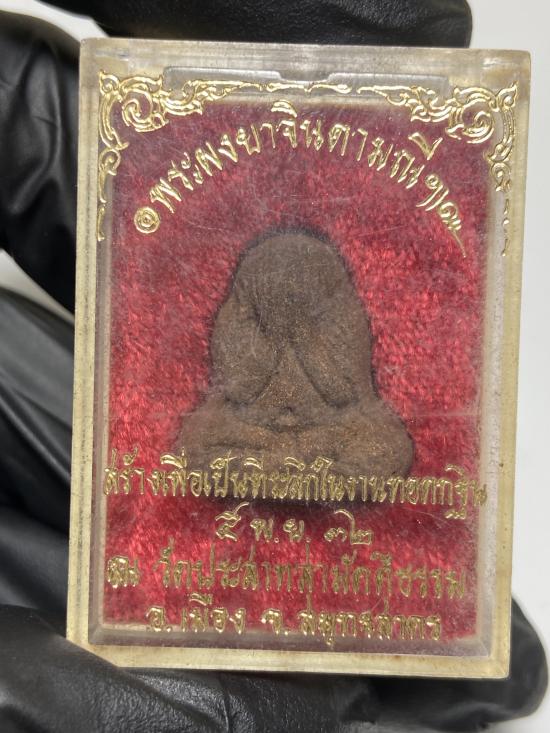 ๏ พระผงยาจินดามณี ๚๛
สร้างเพื่อเป็นที่ระลึกในงานทอดกฐิน
๕ พ.ย. ๓๒
ณ วัดประสาทสามัคคีธรรม
อ.เมือง จ.สมุทรสาคร